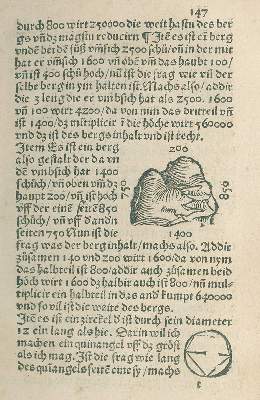 147
durch 800 wirt 250000 die weit hastu des ber
gs vñ dz magstu reducirn ¶ Itē es ist ein berg
vndē beidē füß vmsich 2500 schü/vñ in der mit
hat er vmsich 1600 vñ obē vm̄ das haubt 100/
vñ ist 400 schü hoch/nu ist die frag wie vil der
selbe berg in ym halten ist. Machs also/addir
die 3 leng die er vmbsich hat als 2500. 1600
vñ 100 wirt 4200/da von nim das dritteil vñ
ist 1400/dz multiplicir in die höche wirt 560000
vnd dz ist des bergs inhalt vnd ist recht.
Item Es ist ein berg
also gestalt der da vn
dē vmbsich hat 1400
schüch/vñ oben vm̄ dz
haupt 200/vñ ist hoch
vff der einē seitē 850
schüch/vñ vff d andn̄
seiten 750 Nun ist die
frag was der berg inhalt/machs also. Addir
züsamen 140 vnd 200 wirt 1600/da von nym
das halbteil ist 800/addir auch züsamen beid
höch wirt 1600 dz halbir auch ist 800/vñ mul-
tiplicir ein halbteil in das and kumpt 640000
vnd so vil ist die weite des bergs.
Itē es ist ein zirckel d ist durch sein diameter
12 ein lang als hie. Darin wil ich
machen ein quinangel vff dz gröst
als ich mag. Ist die frag wie lang
des quiangels seitē eine sy/machs
200
750
850
1400